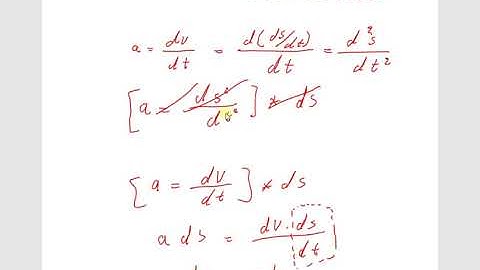 a = dv/dt = d(ds/dt)/dt = d²s/dt²
[a = ds²/dt²] * ds
[a = dV/dt] * ds
a ds = dV · ds/dt